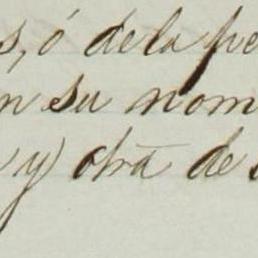 s, ó de la pe
n su nom
y) otra de